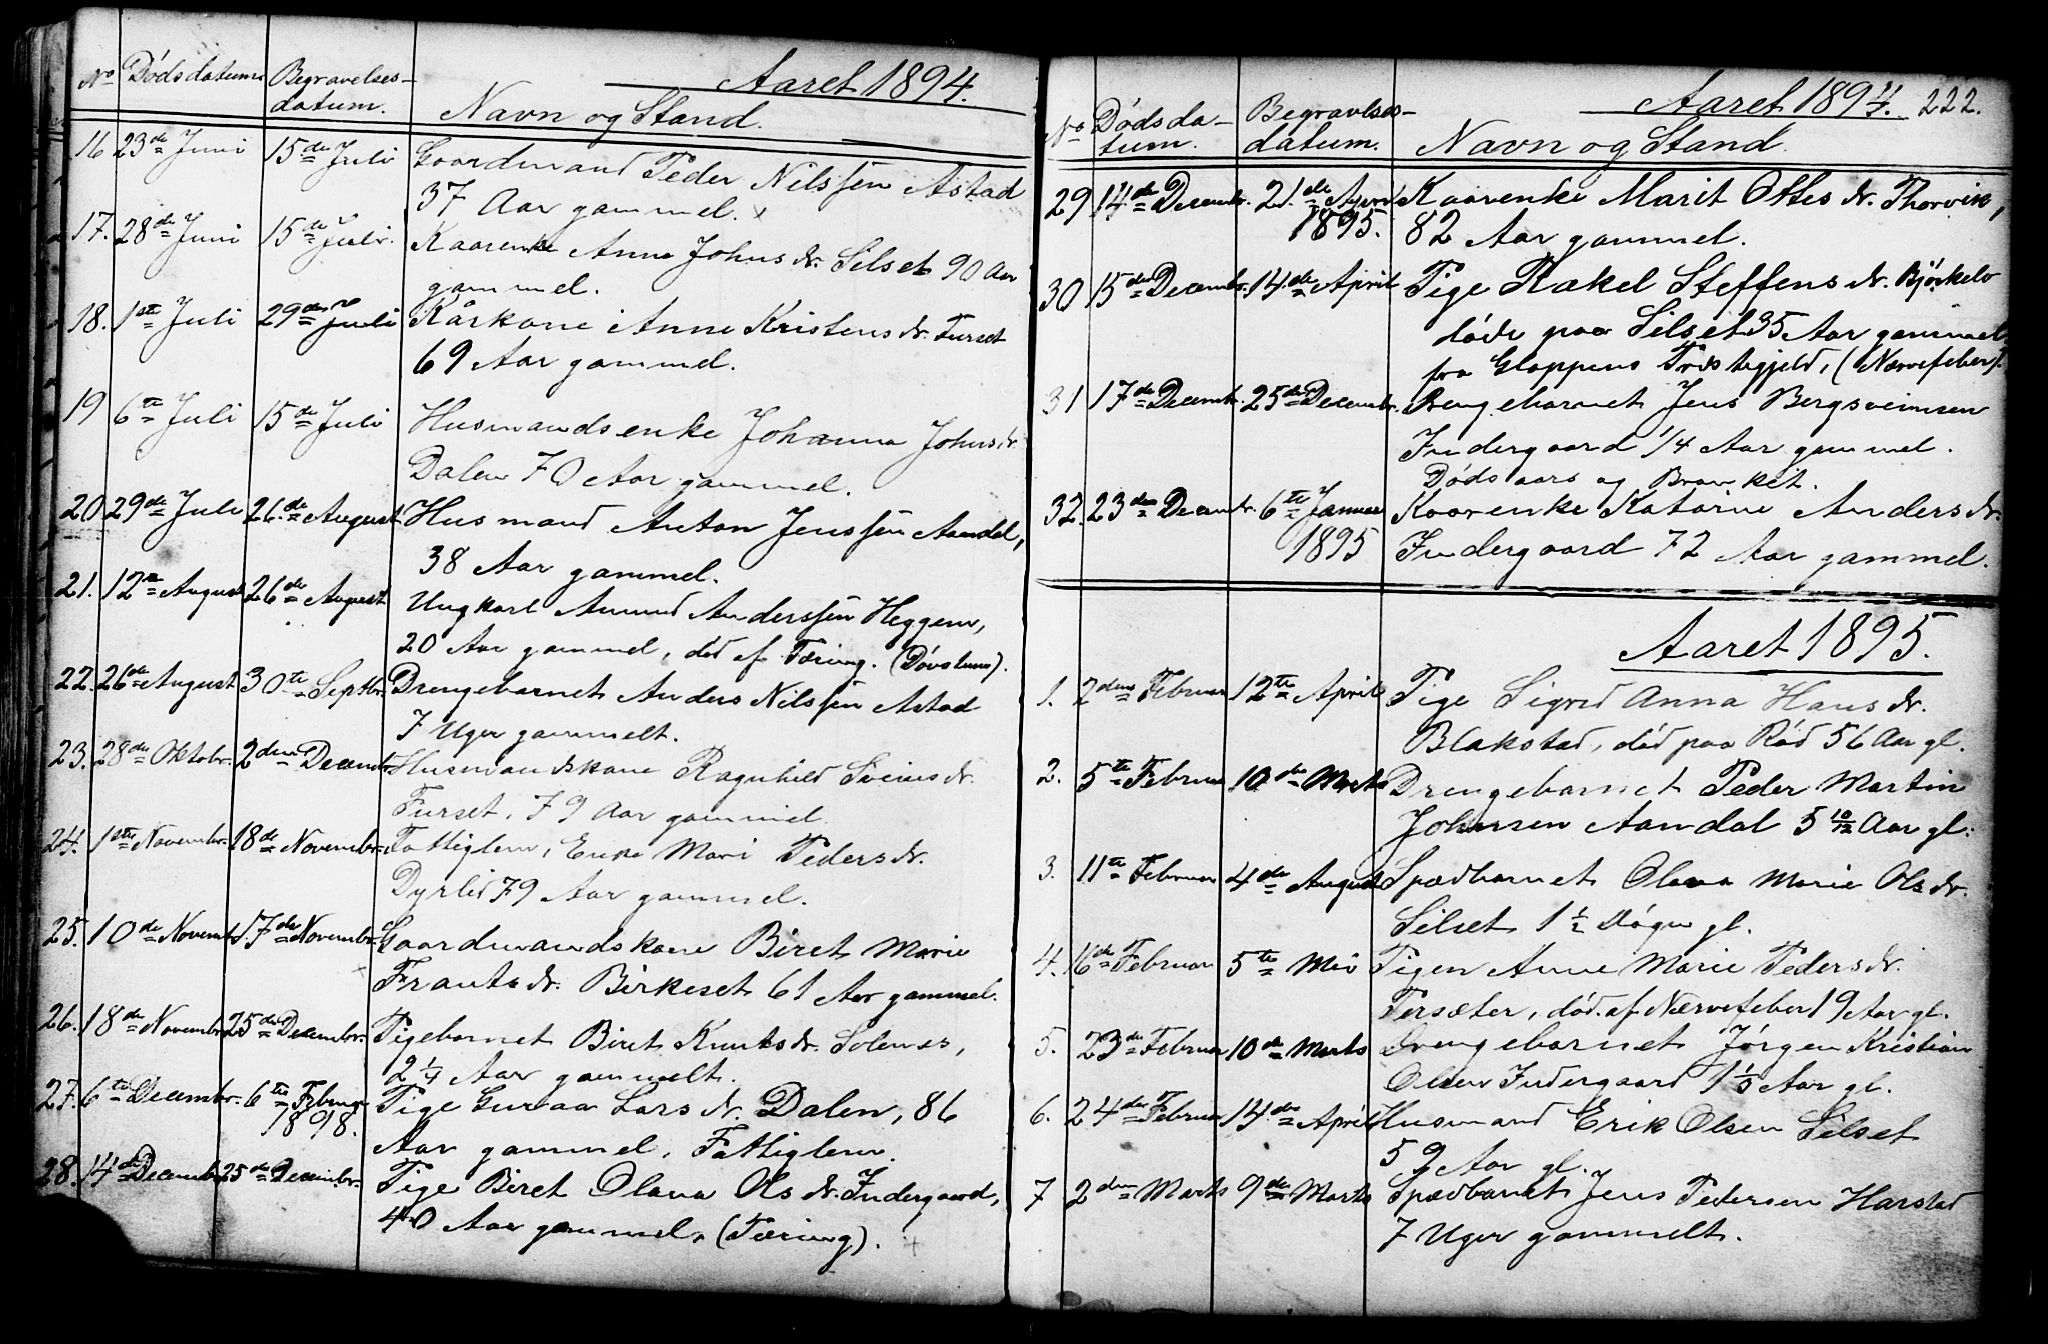 Aaret 1894.
No Dödsdatum Begravelses-
datum. Navn og Stand.
16 23de Juni 15de Juli Gaardmand Peder Nilssen Astad
37 Aar gammel.
17. 28de Juni 15de Juli. Kaarenke Anne Johnsdr. Silset 90 Aar
gammel.
18. 1ste Juli 29de Juli Kårkone Anne Kristensdr. Furset
69 Aar gammel.
19 6te Juli 15de Juli Husmandsenke Johanna Johnsdr.
Dalen 70 Aar gammel.
20 29de Juli 26.de August Husmand Anton Jenssen Aandal,
38 Aar gammel.
21. 12te August 26de August
Ungkarl Amund Anderssen Heggem,
20 Aar gammel, död af Tæring. (Dövstum).
22. 26de August 30te Septbr. Drengebarnet Anders Nilssen Astad
7 Uger gammelt.
23. 28de Oktobr. 2den Decembr. Husmandskone Ragnhild Sveinsdr.
Furset, 79 Aar gammel
24. 1ste Novembr. 18de Novembr. Fattiglem, Enke Mari Pedersdr.
Dyrlid 79 Aar gammel.
25. 10de Novembr. 17de Novembr. Gaardmandskone Beret Marie
Frantsdr. Birkeset 61 Aar gammel.
26. 18de Novembr. 25de Decembr. Pigebarnet Beret Knutsdr. Solenes,
2 1/4 Aar gammelt.
27. 6te Decembr. 6te Februar Pige Guraa Larsdr. Dalen, 86
1898. Aar gammel, Fattiglem.
28. 14de Decembr. 25de Decembr. Pige Beret Olava Olsdr. Indergaard,
40 Aar gammel, (Tæring).
Aaret 1894. 222.
No Dödsda- Begravelses-
tum. datum. Navn og Stand.
29 14de Decembr. 21.de April Kaarenke Marit Ottesdr. Thorvik,
1895. 82 Aar gammel.
30 15de Decembr. 14.de April Pige Rakel Steffensdr. Björkelo
döde paa Silset 35 Aar gammel,
fra Gloppens Præstegjeld, (Nervefeber).
31 17de Decembr. 25de Decembr. Drengebarnet Jens Bergsveinsen
Indergaard 1/4 Aar gammel.
Dödsaars og Bronkit.
32. 23de Decembr. 6te Januar Kaarenke Katarine Andersdr.
1895 Indergaard 72 Aar gammel.
Aaret 1895.
1. 2den Februar 12te April Pige Sigrid Anna Hansdr.
Blakstad, död paa Röd 56 Aar gl.
2. 5te Februar 10.de Marts Drengebarnet Peder Martin
Johnsen Aandal 5 10/12 Aar gl.
3. 11te Februar 4de August Spædbarnet Olava Marie Olsdr.
Silset 1 1/2 Dögn gl.
4. 16de Februar 5te Mai Pigen Anne Marie Pedersdr.
Persæter, död af Nærvefeber 19 Aar gl.
5. 23de Februar 10de Marts Drengebarnet Jörgen Kristian
Olsen Indergaard 1 1/3 Aar gl.
6. 24de Februar 14de April Husmand Erik Olsen Silset
59 Aar gl.
7 2den Marts 9de Marts Spædbarnet Jens Pedersen Harstad
7 Uger gammelt.